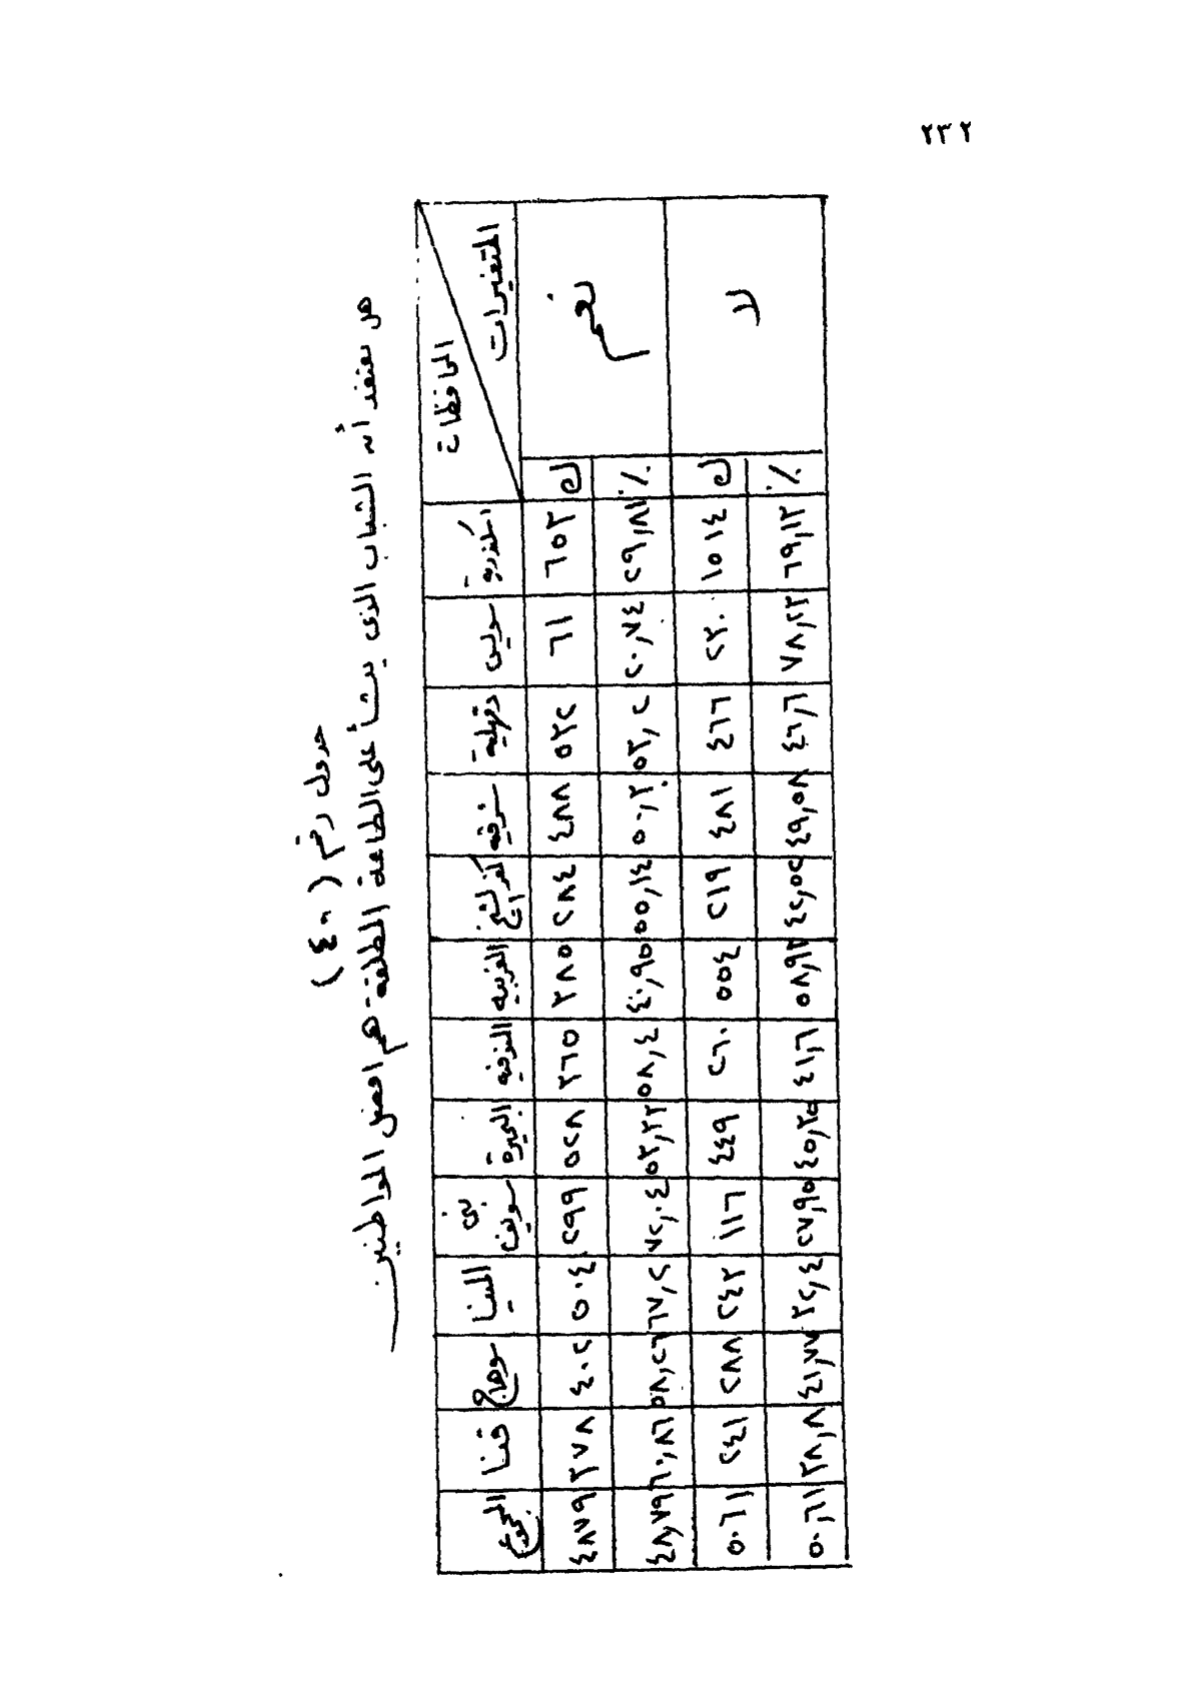 ٢٣٢
جدول رقم (٤٠)
هل تعتقد أن الشباب الذى ينشأ على الطاعة المطلقة هم افضل المواطنين
المتغيرات
المحافظات اسكندرية سويس دقهلية شرقيه كفر الشيخ الغربيه المنوفيه البحيرة بنى سويف المنيا سوهاج قنا المجموع
نعم
ك ٦٥٣ ٦١ ٥٣٢ ٤٨٨ ٢٨٤ ٣٨٥ ٣٦٥ ٥٢٨ ٢٩٩ ٥٠٤ ٤٠٢ ٣٧٨ ٤٨٧٩
٪ ٢٩,٨١ ٢٠,٧٤ ٥٣,٢ ٥٠,٣ ٥٥,١٤ ٤٠,٩٥ ٥٨,٤ ٥٣,٢٢ ٧٢,٠٤ ٦٧,٢ ٥٨,٢٦ ٦٠,٨٦ ٤٨,٧٩
لا
ك ١٥١٤ ٢٣٠ ٤٦٦ ٤٨١ ٢١٩ ٥٥٤ ٢٦٠ ٤٤٩ ١١٦ ٢٤٣ ٢٨٨ ٢٤١ ٥٠٦١
٪ ٦٩,١٢ ٧٨,٢٣ ٤٦,٦ ٤٩,٥٨ ٤٢,٥٢ ٥٨,٩٣ ٤١,٦ ٤٥,٢٥ ٢٧,٩٥ ٣٢,٤ ٤١,٧٣ ٣٨,٨ ٥٠,٦١